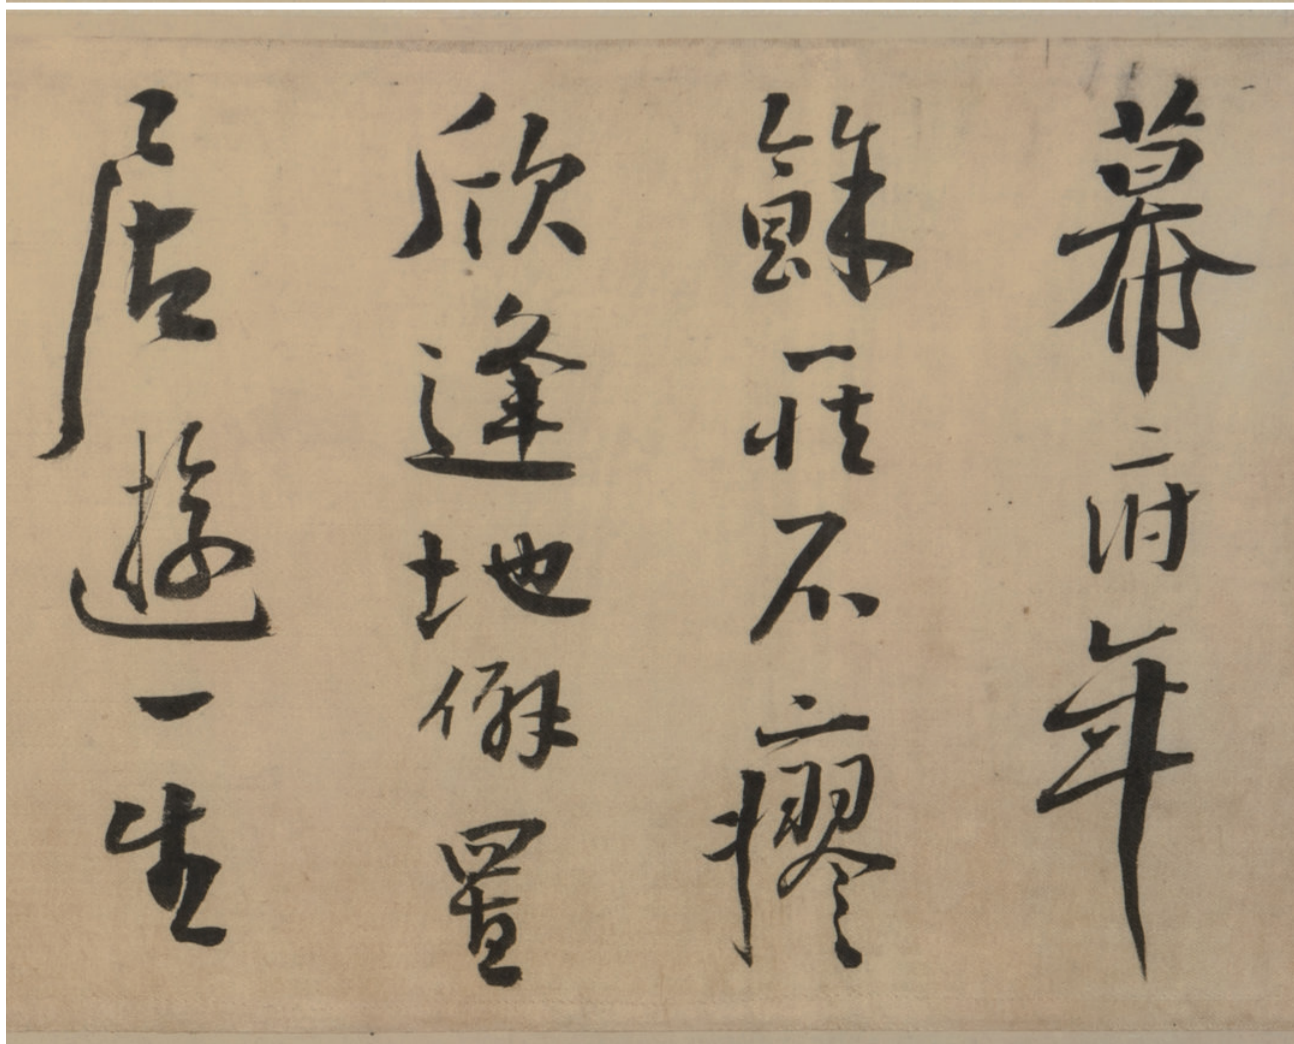 幕府年
餘疾不瘳
欣逢地僻置
居遊一生